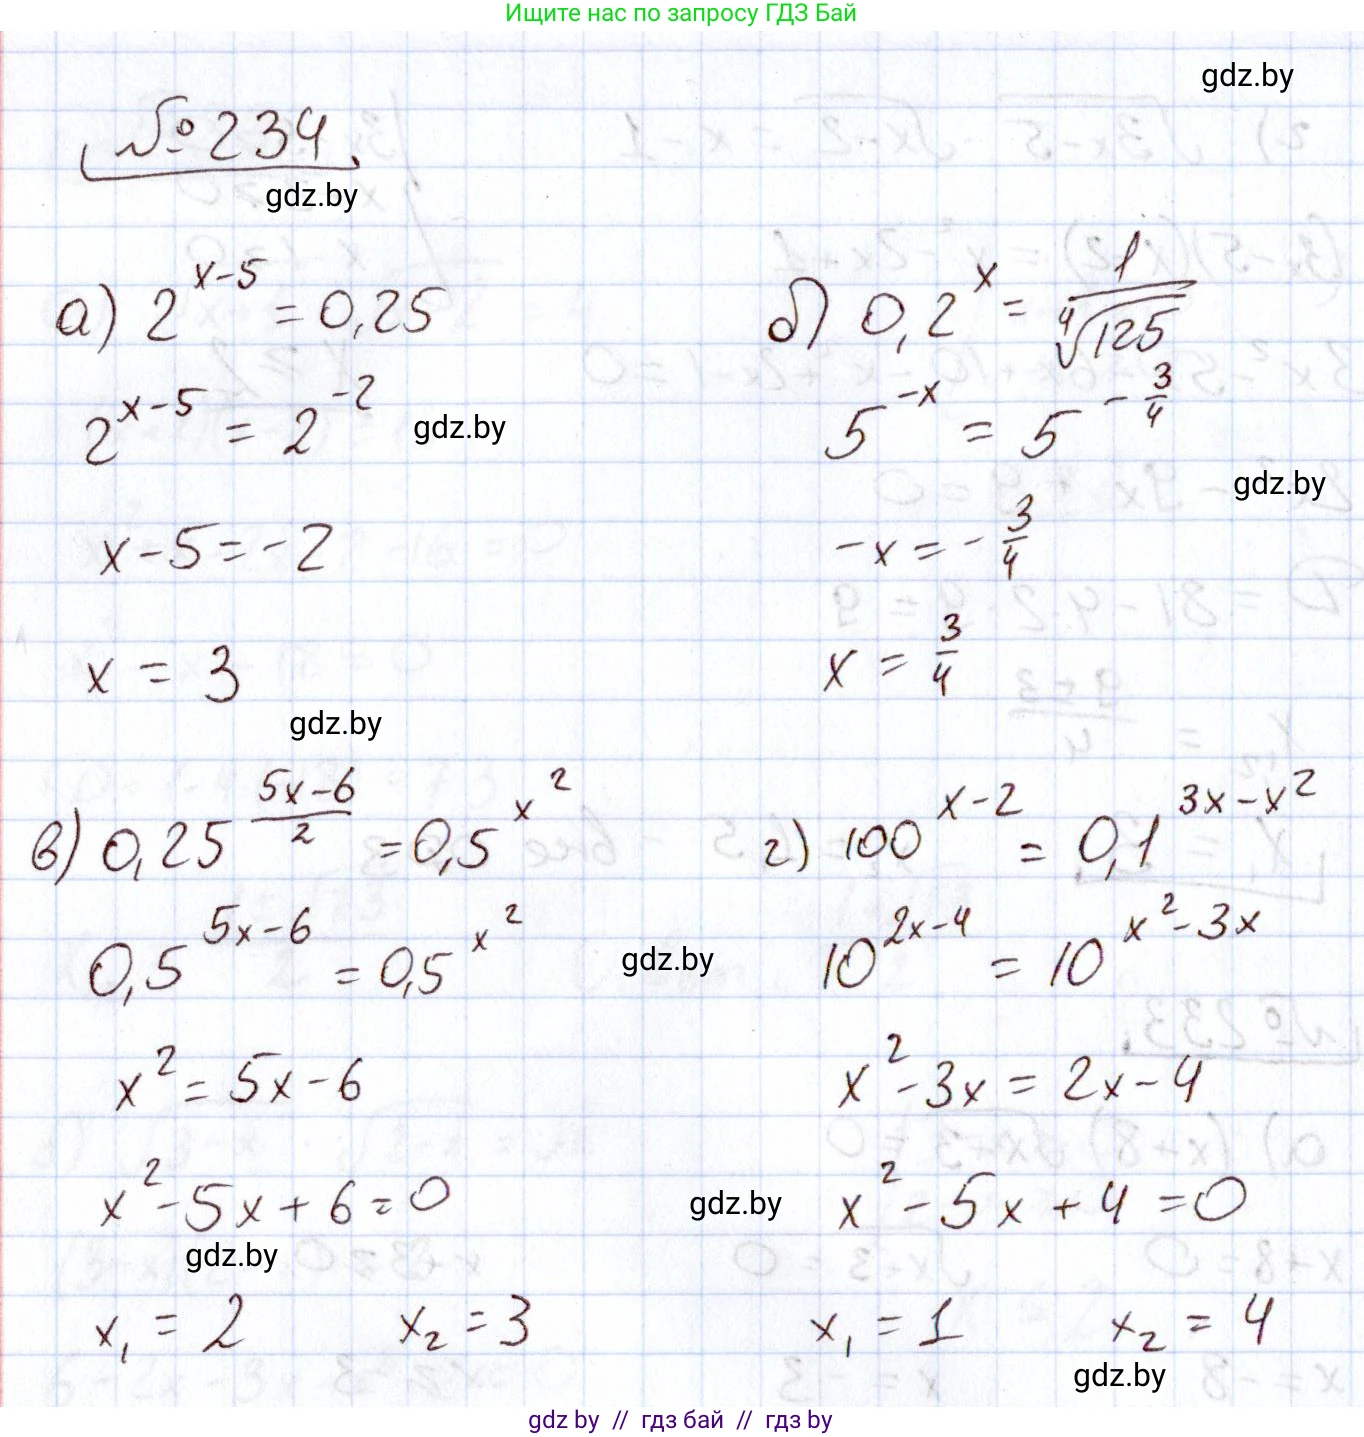 Ищите нас по запросу ГДЗ Бай
gdz.by
№ 234
gdz.by
а) 2^(x-5) = 0,25
2^(x-5) = 2^(-2)
gdz.by
x-5=-2
x = 3
gdz.by
б) 0,2^x = 1/⁴√125
5^(-x) = 5^(-3/4)
gdz.by
-x = -3/4
x = 3/4
в) 0,25^((5x-6)/2) = 0,5^(x²)
0,5^(5x-6) = 0,5^(x²)
gdz.by
x² = 5x-6
x²-5x+6=0
gdz.by
x₁ = 2 x₂ = 3
г) 100^(x-2) = 0,1^(3x-x²)
10^(2x-4) = 10^(x²-3x)
x²-3x = 2x-4
gdz.by
x²-5x+4=0
x₁ = 1 x₂ = 4
gdz.by
gdz.by // гдз бай // гдз by